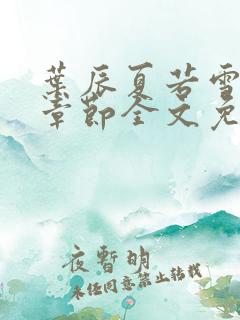 葉辰夏若雪
章節全文免
夜暫明
未经同意禁止转载